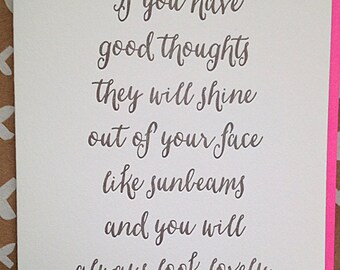 If you have
good thoughts
they will shine
out of your face
like sunbeams
and you will
always look lovely